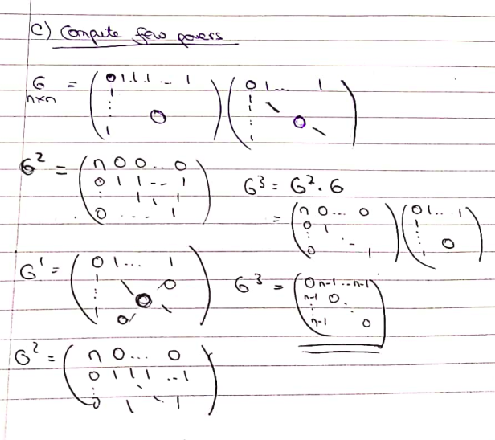 c) Compute few powers
G n×n = ( 0 1 1 1 - 1 ⋮ 1 0 ) ( 0 1 ... 1 1 ⋮ 1 0 )
G² = ( n 0 0 .. 0 0 1 1 -- 1 ⋮ 1 1 1 0 ... 1 )
G³ = G² · G
= ( n 0 ... 0 0 1 ⋮ 0 1 ) ( 0 1 .. 1 1 ⋮ 1 0 )
G¹ = ( 0 1 ... 1 1 0 ⋮ 0 1 0 )
G³ = ( 0 n-1 ... n-1 n-1 0 ⋮ n-1 0 )
G² = ( n 0 ... 0 0 1 1 1 .. 1 ⋮ 0 1 1 )